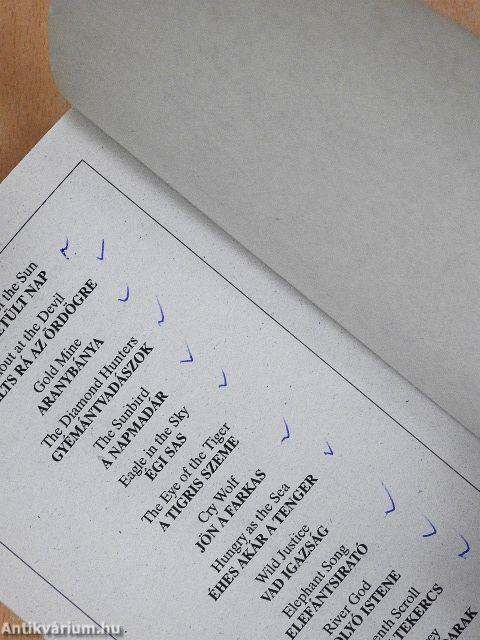 the Sun
NAP
out at the Devil
RÁ AZ ÖRDÖGRE
Gold Mine
ARANYBÁNYA
The Diamond Hunters
GYÉMÁNTVADÁSZOK
The Sunbird
A NAPMADÁR
Eagle in the Sky
ÉGI SAS
The Eye of the Tiger
A TIGRIS SZEME
Cry Wolf
JÖN A FARKAS
Hungry as the Sea
ÉHES AKÁR A TENGER
Wild Justice
VAD IGAZSÁG
Elephant Song
ELEFÁNTSIRATÓ
River God
ISTENE
Scroll
Antikvárium.hu